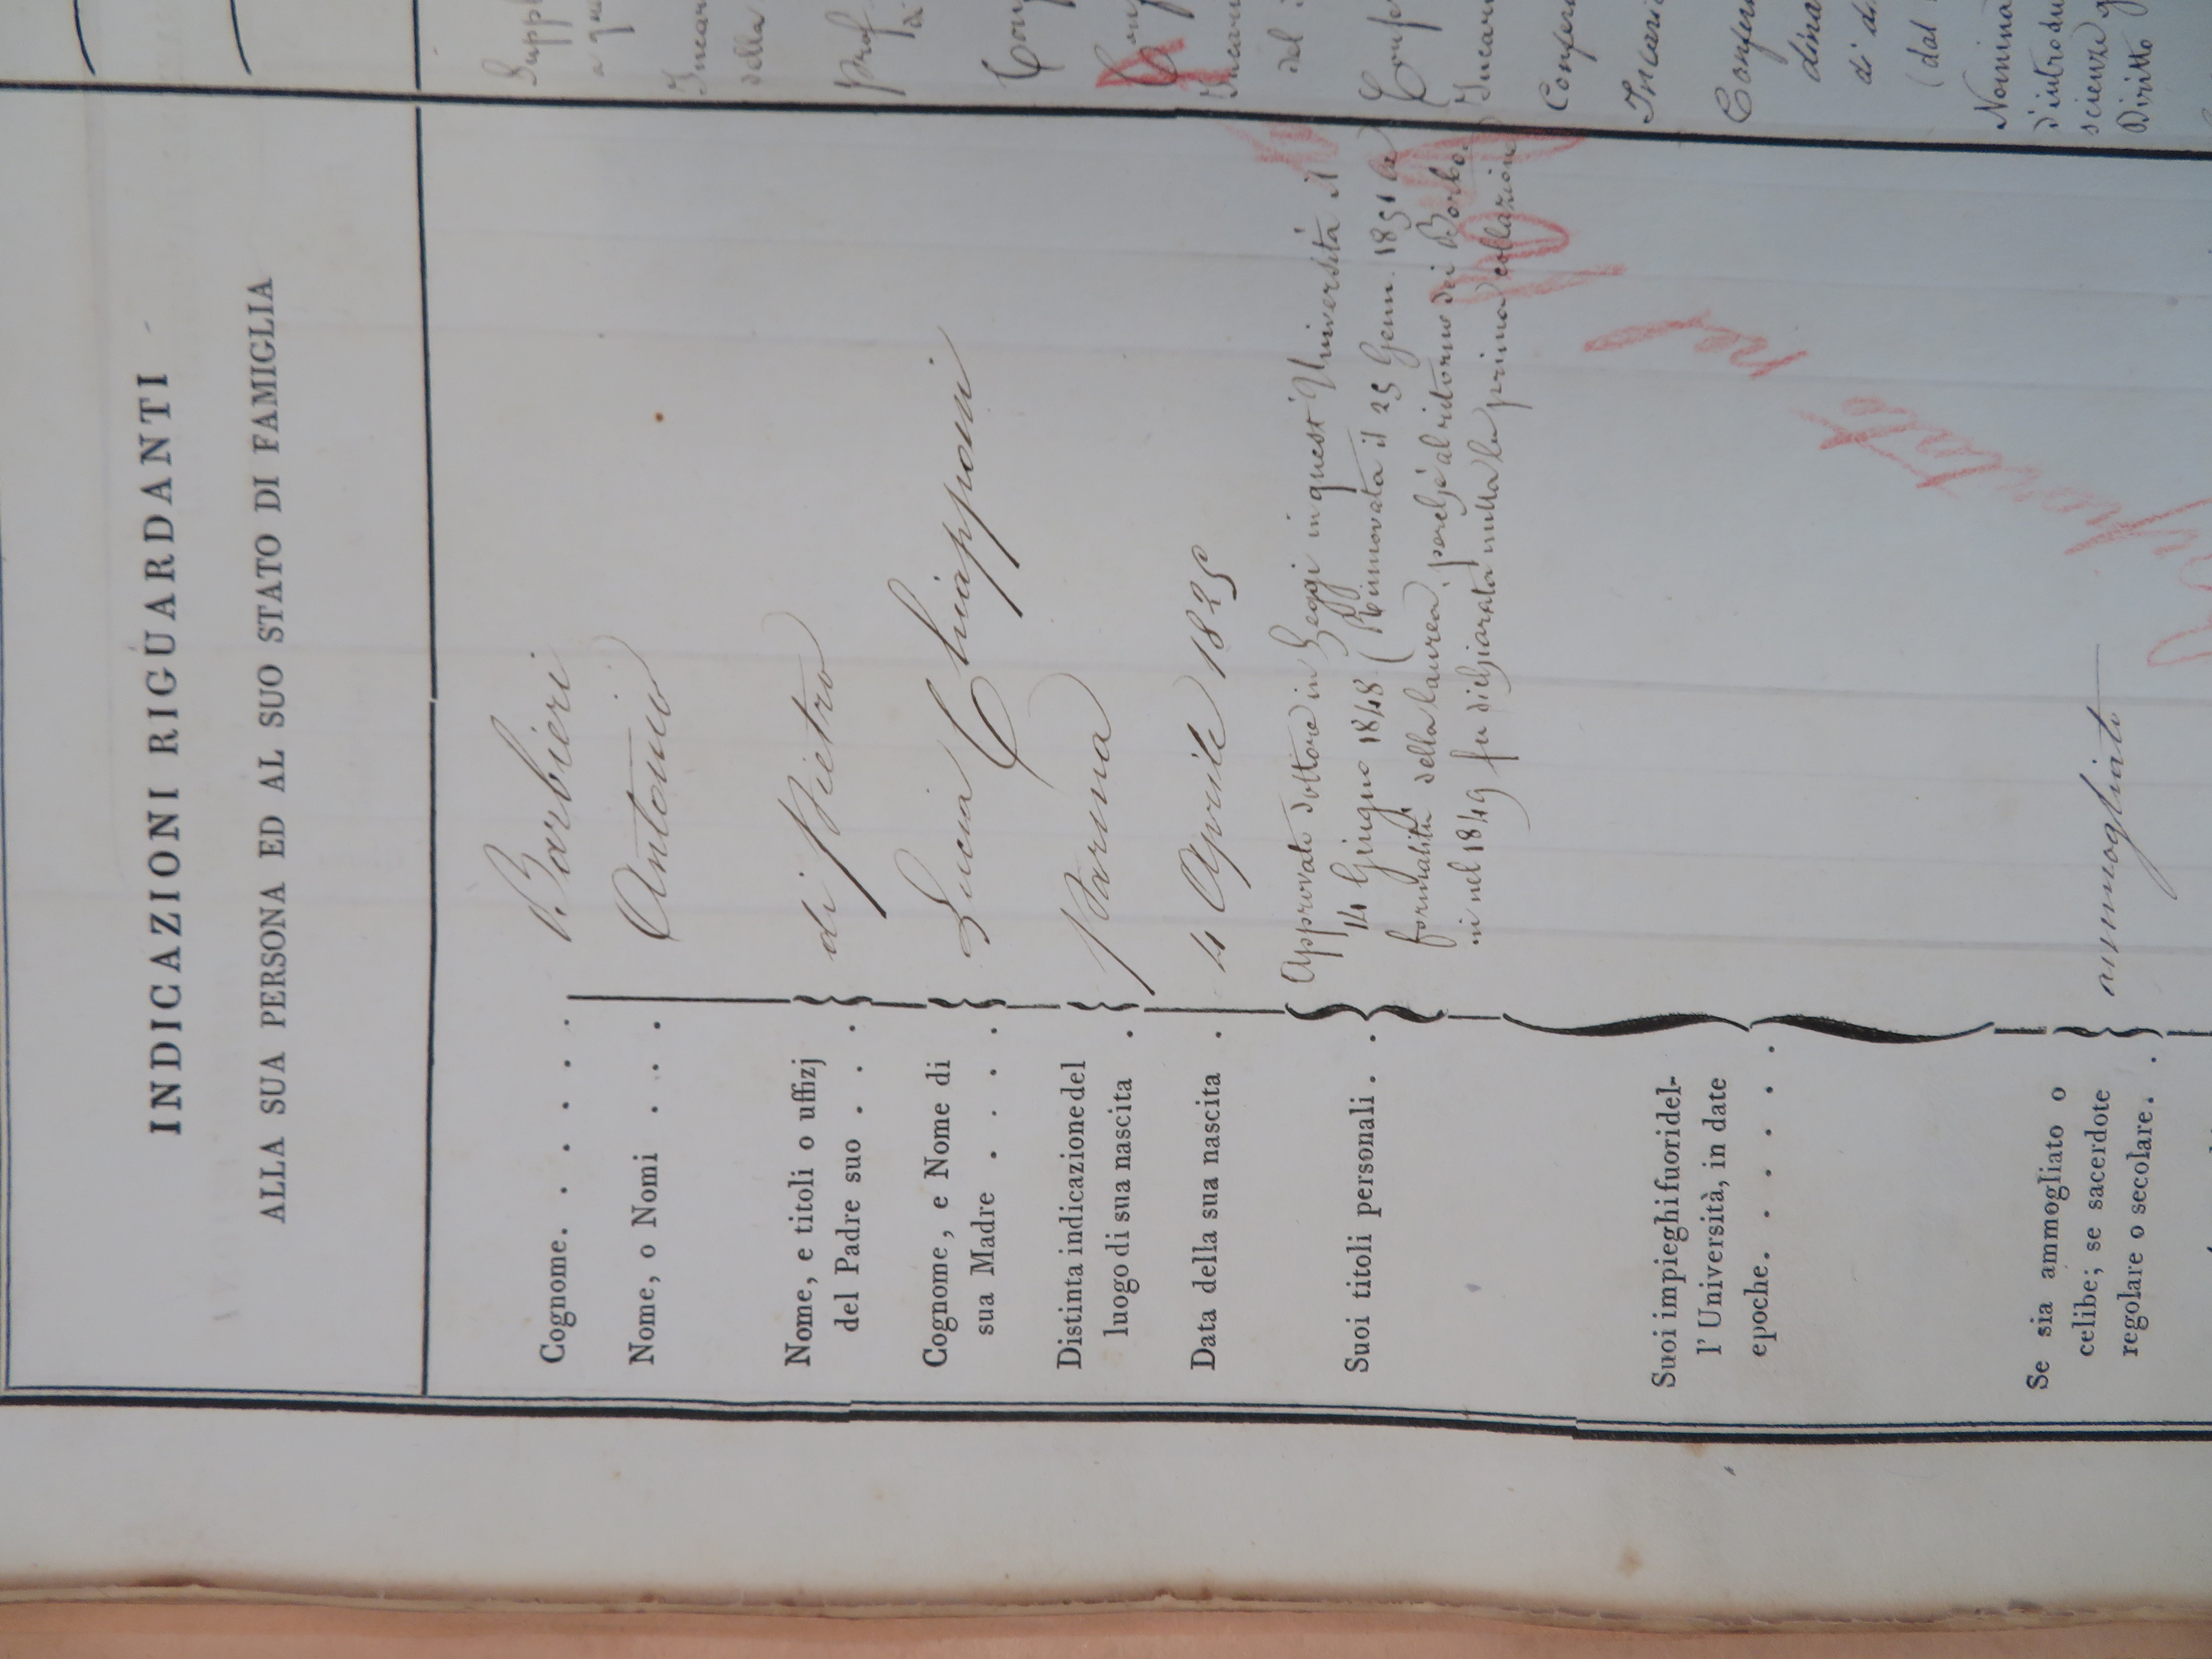 INDICAZIONI RIGUARDANTI
ALLA SUA PERSONA ED AL SUO STATO DI FAMIGLIA
Cognome. . . . . . Barbieri
Nome, o Nomi . . . . Antonio
Nome, e titoli o uffizj
del Padre suo . . . di Pietro
Cognome, e Nome di
sua Madre . . . . Lucia Chiapponi
Distinta indicazione del
luogo di sua nascita . Parma
Data della sua nascita . 4 Aprile 1825
Suoi titoli personali. . Approvato dottore in Leggi in quest' Università il
14 Giugno 1848 (Rinnovata il 25 Genn. 1851 la
formalità della laurea, perchè al ritorno dei Borbo-
ni nel 1849 fu dichiarata nulla la prima collazione)
Suoi impieghi fuori del-
l' Università, in date
epoche. . . . . .
Se sia ammogliato o
celibe; se sacerdote
regolare o secolare. . ammogliato
Suppl
Incari
della
Prof.
Incari
dal
Incari
Confer
Incari
Confer
dina
di d
(dal
Nomina
d'introdu
scienze g
Diritto